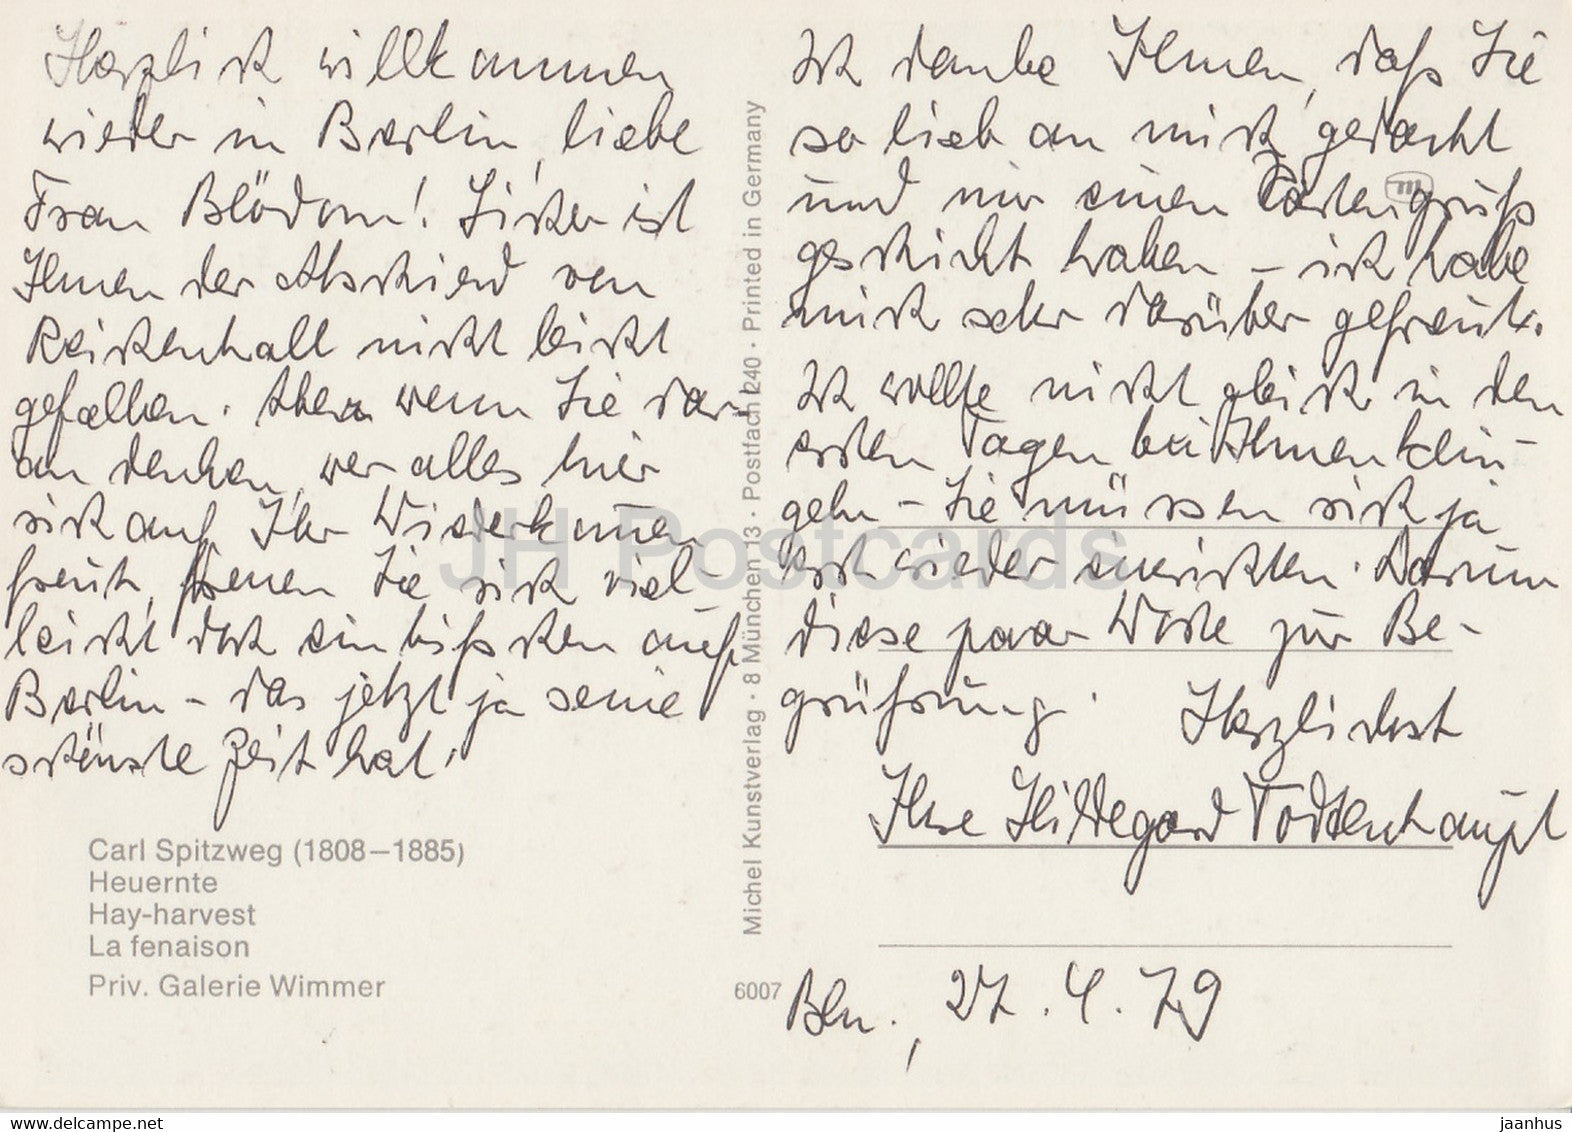 Herzlich willkommen
wieder in Berlin, liebe
Frau Blödorn! Sicher ist
Ihnen der Abschied von
Reichenhall nicht leicht
gefallen. Aber wenn Sie dar-
an denken, wer alles hier
sich auf Ihr Wiederkommen
freut, freuen Sie sich viel-
leicht doch ein bißchen auf
Berlin – das jetzt ja seine
schönste Zeit hat!
Carl Spitzweg (1808–1885)
Heuernte
Hay-harvest
La fenaison
Priv. Galerie Wimmer
Michel Kunstverlag · 8 München 13 · Postfach 240 · Printed in Germany
6007
Ich danke Ihnen, daß Sie
so lieb an mich gedacht
und mir einen Kartengruß
geschickt haben – ich habe
mich sehr darüber gefreut.
Ich wollte nicht gleich in den
ersten Tagen bei Ihnen klin-
geln – Sie müssen sich ja
erst wieder einrichten. Darum
diese paar Worte zur Be-
grüßung. Herzlichst
Ihre Hildegard Todtenhaupt
Bln., 27.4.79
JH Postcards
www.delcampe.net
jaanhus